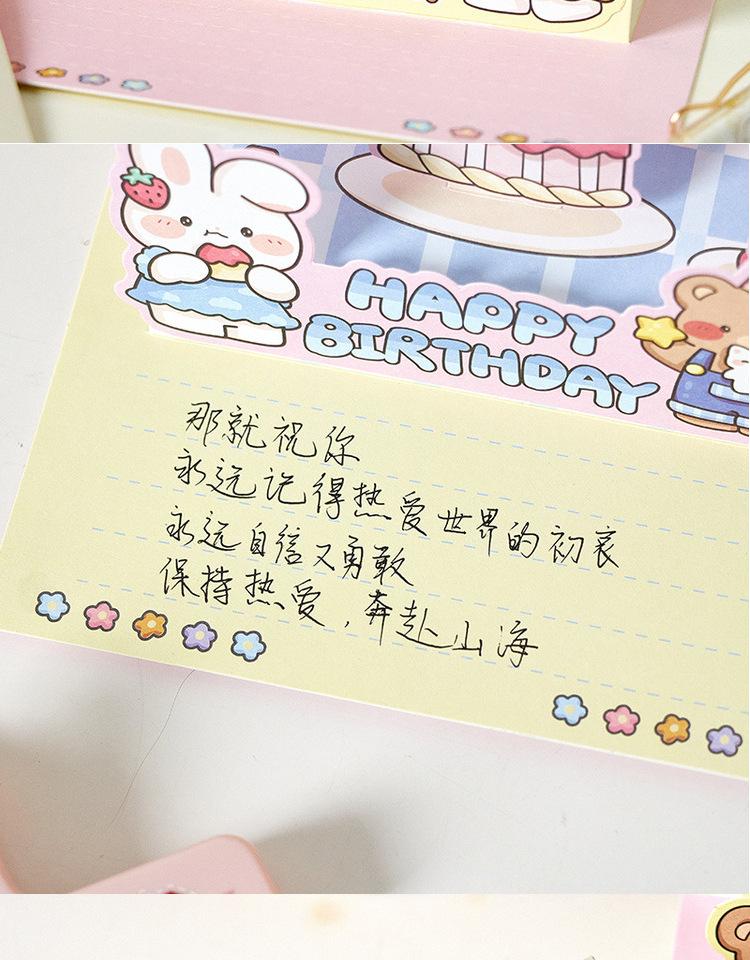 HAPPY
BIRTHDAY
那就祝你
永远记得热爱世界的初衷
永远自信又勇敢
保持热爱，奔赴山海